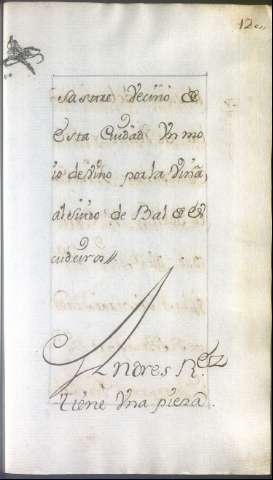 12
sastre Vecino de
esta Ciudad Vn mo
io de Vino por la Viña
al sitio de Bal de Es
cudeiros//.
Andres R.ez
tiene Vna pieza